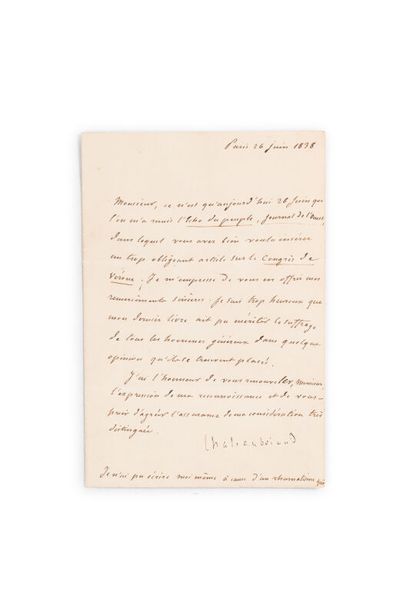 Paris 26 juin 1838
Monsieur, ce n'est qu'aujourd'hui 26 juin que
l'on m'a remis l'Echo du peuple, journal de l'ouest,
dans lequel vous avez bien voulu insérer
un trop obligeant article sur le Congrès de
Vérone; je m'empresse de vous en offrir mes
remerciements sincères. Je suis trop heureux que
mon dernier livre ait pu mériter le suffrage
de tous les hommes généreux dans quelque
opinion qu'ils se trouvent placés.
J'ai l'honneur de vous renouveller, Monsieur,
l'expression de ma reconnaissance et de vous
prier d'agréer l'assurance de ma considération très
distinguée.
Chateaubriand
Je n'ai pu écrire moi même à cause d'un rhumatisme